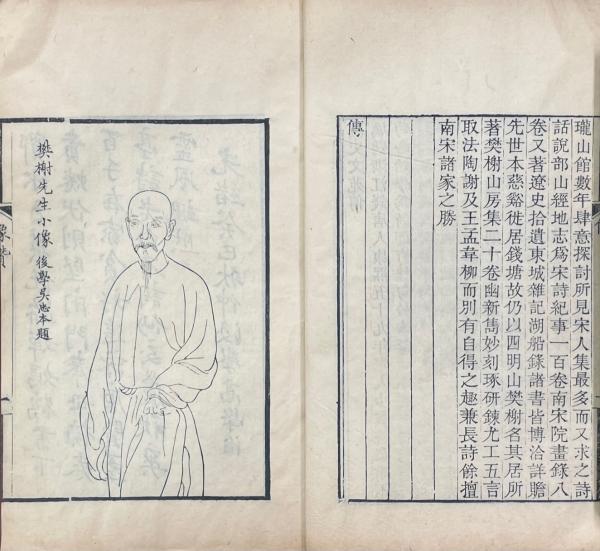 瓏山館數年肆意探討所見宋人集最多而又求之詩
話說部山經地志爲宋詩紀事一百卷南宋院畫錄八
卷又著遼史拾遺東城雜記湖船錄諸書皆博洽詳贍
先世本慈谿徙居錢塘故仍以四明山樊榭名其居所
著樊榭山房集二十卷幽新雋妙刻琢研鍊尤工五言
取法陶謝及王孟韋柳而別有自得之趣兼長詩餘擅
南宋諸家之勝
傳
樊榭先生小像
後學吳忠本題
像贊